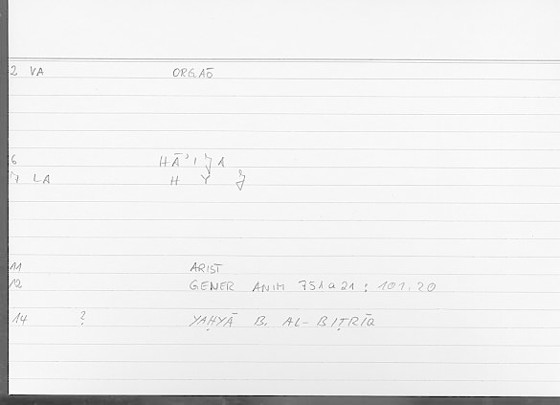 2 VA ORGAŌ
6 HĀʾIǦA
7 LA H Y Ǧ
11 ARIST
12 GENER ANIM 751a21 : 101.20
14 ? YAḤYĀ B. AL-BIṬRĪQ